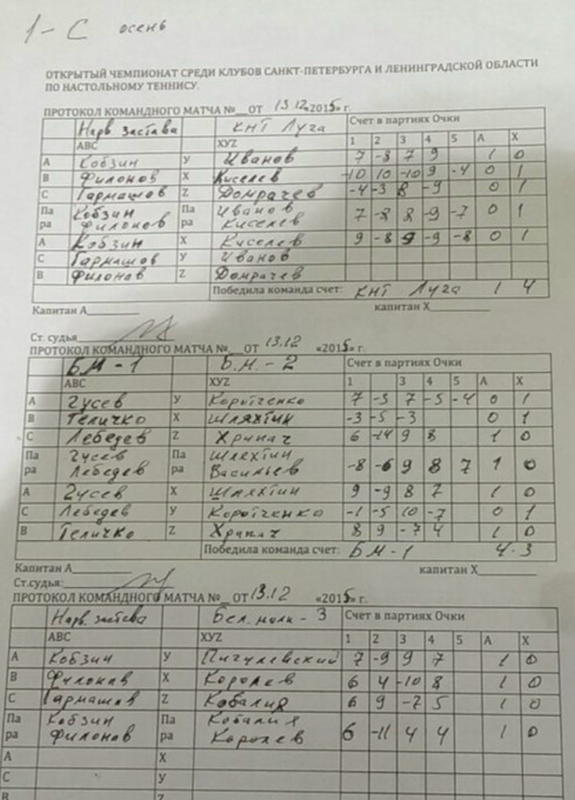 1-С осень
ОТКРЫТЫЙ ЧЕМПИОНАТ СРЕДИ КЛУБОВ САНКТ-ПЕТЕРБУРГА И ЛЕНИНГРАДСКОЙ ОБЛАСТИ
ПО НАСТОЛЬНОМУ ТЕННИСУ.
ПРОТОКОЛ КОМАНДНОГО МАТЧА №__ ОТ 13.12 «2015» г.
Нарв. застава КНТ Луга Счет в партиях Очки
АВС XYZ 1 2 3 4 5 А Х
А Кобзин У Иванов 7 -8 7 9 1 0
В Филонов Х Киселев -10 10 -10 9 -4 0 1
С Гармашов Z Домрачев -4 -3 8 -9 0 1
Па Кобзин Па Иванов 7 -8 8 -9 -7 0 1
ра Филонов ра Киселев
А Кобзин Х Киселев 9 -8 9 -9 -8 0 1
С Гармашов У Иванов
В Филонов Z Домрачев
Победила команда счет: КНТ Луга 1 4
Капитан А________ капитан Х________
Ст. судья________
ПРОТОКОЛ КОМАНДНОГО МАТЧА №__ ОТ 13.12 «2015» г.
БМ-1 Б.М.-2 Счет в партиях Очки
АВС XYZ 1 2 3 4 5 А Х
А Гусев У Коротченко 7 -3 7 -5 -4 0 1
В Теличко Х Шляхтин -3 -5 -3 0 1
С Лебедев Z Хрипач 6 -14 9 8 1 0
Па Гусев Па Шляхтин -8 -6 9 8 7 1 0
ра Лебедев ра Васильев
А Гусев Х Шляхтин 9 -9 8 7 1 0
С Лебедев У Коротченко -1 -5 10 -7 0 1
В Теличко Z Хрипач 8 9 -7 4 1 0
Победила команда счет: БМ-1 4-3
Капитан А________ капитан Х________
Ст.судья:________
ПРОТОКОЛ КОМАНДНОГО МАТЧА №__ ОТ 13.12 «2015» г.
Нарв. застава Бел. ночи - 3 Счет в партиях Очки
АВС XYZ 1 2 3 4 5 А Х
А Кобзин У Пигулевский 7 -9 9 7 1 0
В Филонов Х Королев 6 4 -10 8 1 0
С Гармашов Z Кобалия 6 9 -7 5 1 0
Па Кобзин Па Кобалия 6 -11 4 4 1 0
ра Филонов ра Королев
А Х
С У
В Z